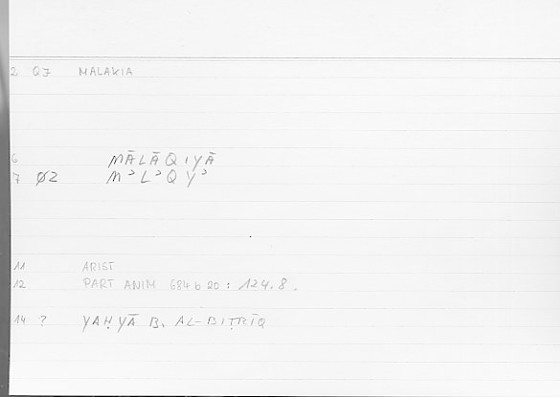 2 Q7 MALAKIA
6 MĀLĀQIYĀ
7 ØZ M᾿L᾿QY᾿
11 ARIST
12 PART ANIM 684 b 20 : 124.8.
14 ? YAḤYĀ B. AL-BIṬRĪQ